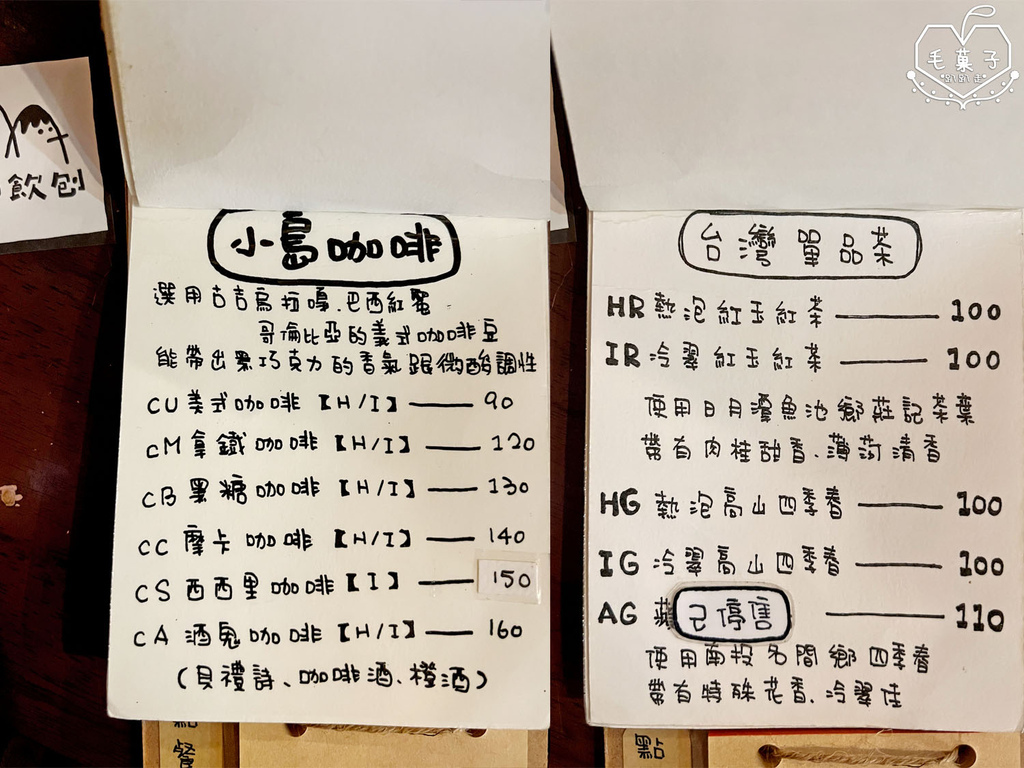 飲刨
小島咖啡
選用古吉烏拉嘎.巴西紅蜜
哥倫比亞的美式咖啡豆
能帶出黑巧克力的香氣跟微酸調性
CU 美式咖啡【H/I】90
CM 拿鐵咖啡【H/I】120
CB 黑糖咖啡【H/I】130
CC 摩卡咖啡【H/I】140
CS 西西里咖啡【I】150
CA 酒鬼咖啡【H/I】160
(貝禮詩、咖啡酒、橙酒)
點餐
毛菓子
趴趴走
台灣單品茶
HR 熱泡紅玉紅茶 100
IR 冷翠紅玉紅茶 100
使用日月潭魚池鄉莊記茶葉
帶有肉桂甜香、薄荷清香
HG 熱泡高山四季春 100
IG 冷翠高山四季春 100
AG 蘋 已停售 110
使用南投名間鄉四季春
帶有特殊花香、冷翠佳
點